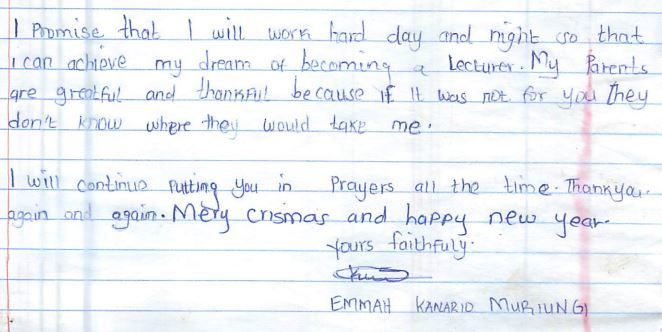 I Promise that I will work hard day and night so that
I can achieve my dream of becoming a Lecturer. My Parents
are greatful and thankful because if it was not for you they
don't know where they would take me.
I will continue putting you in Prayers all the time. Thankyou
again and again. Mery crismas and happy new year.
yours faithfuly.
EMMAH KANARIO MURIUNGI